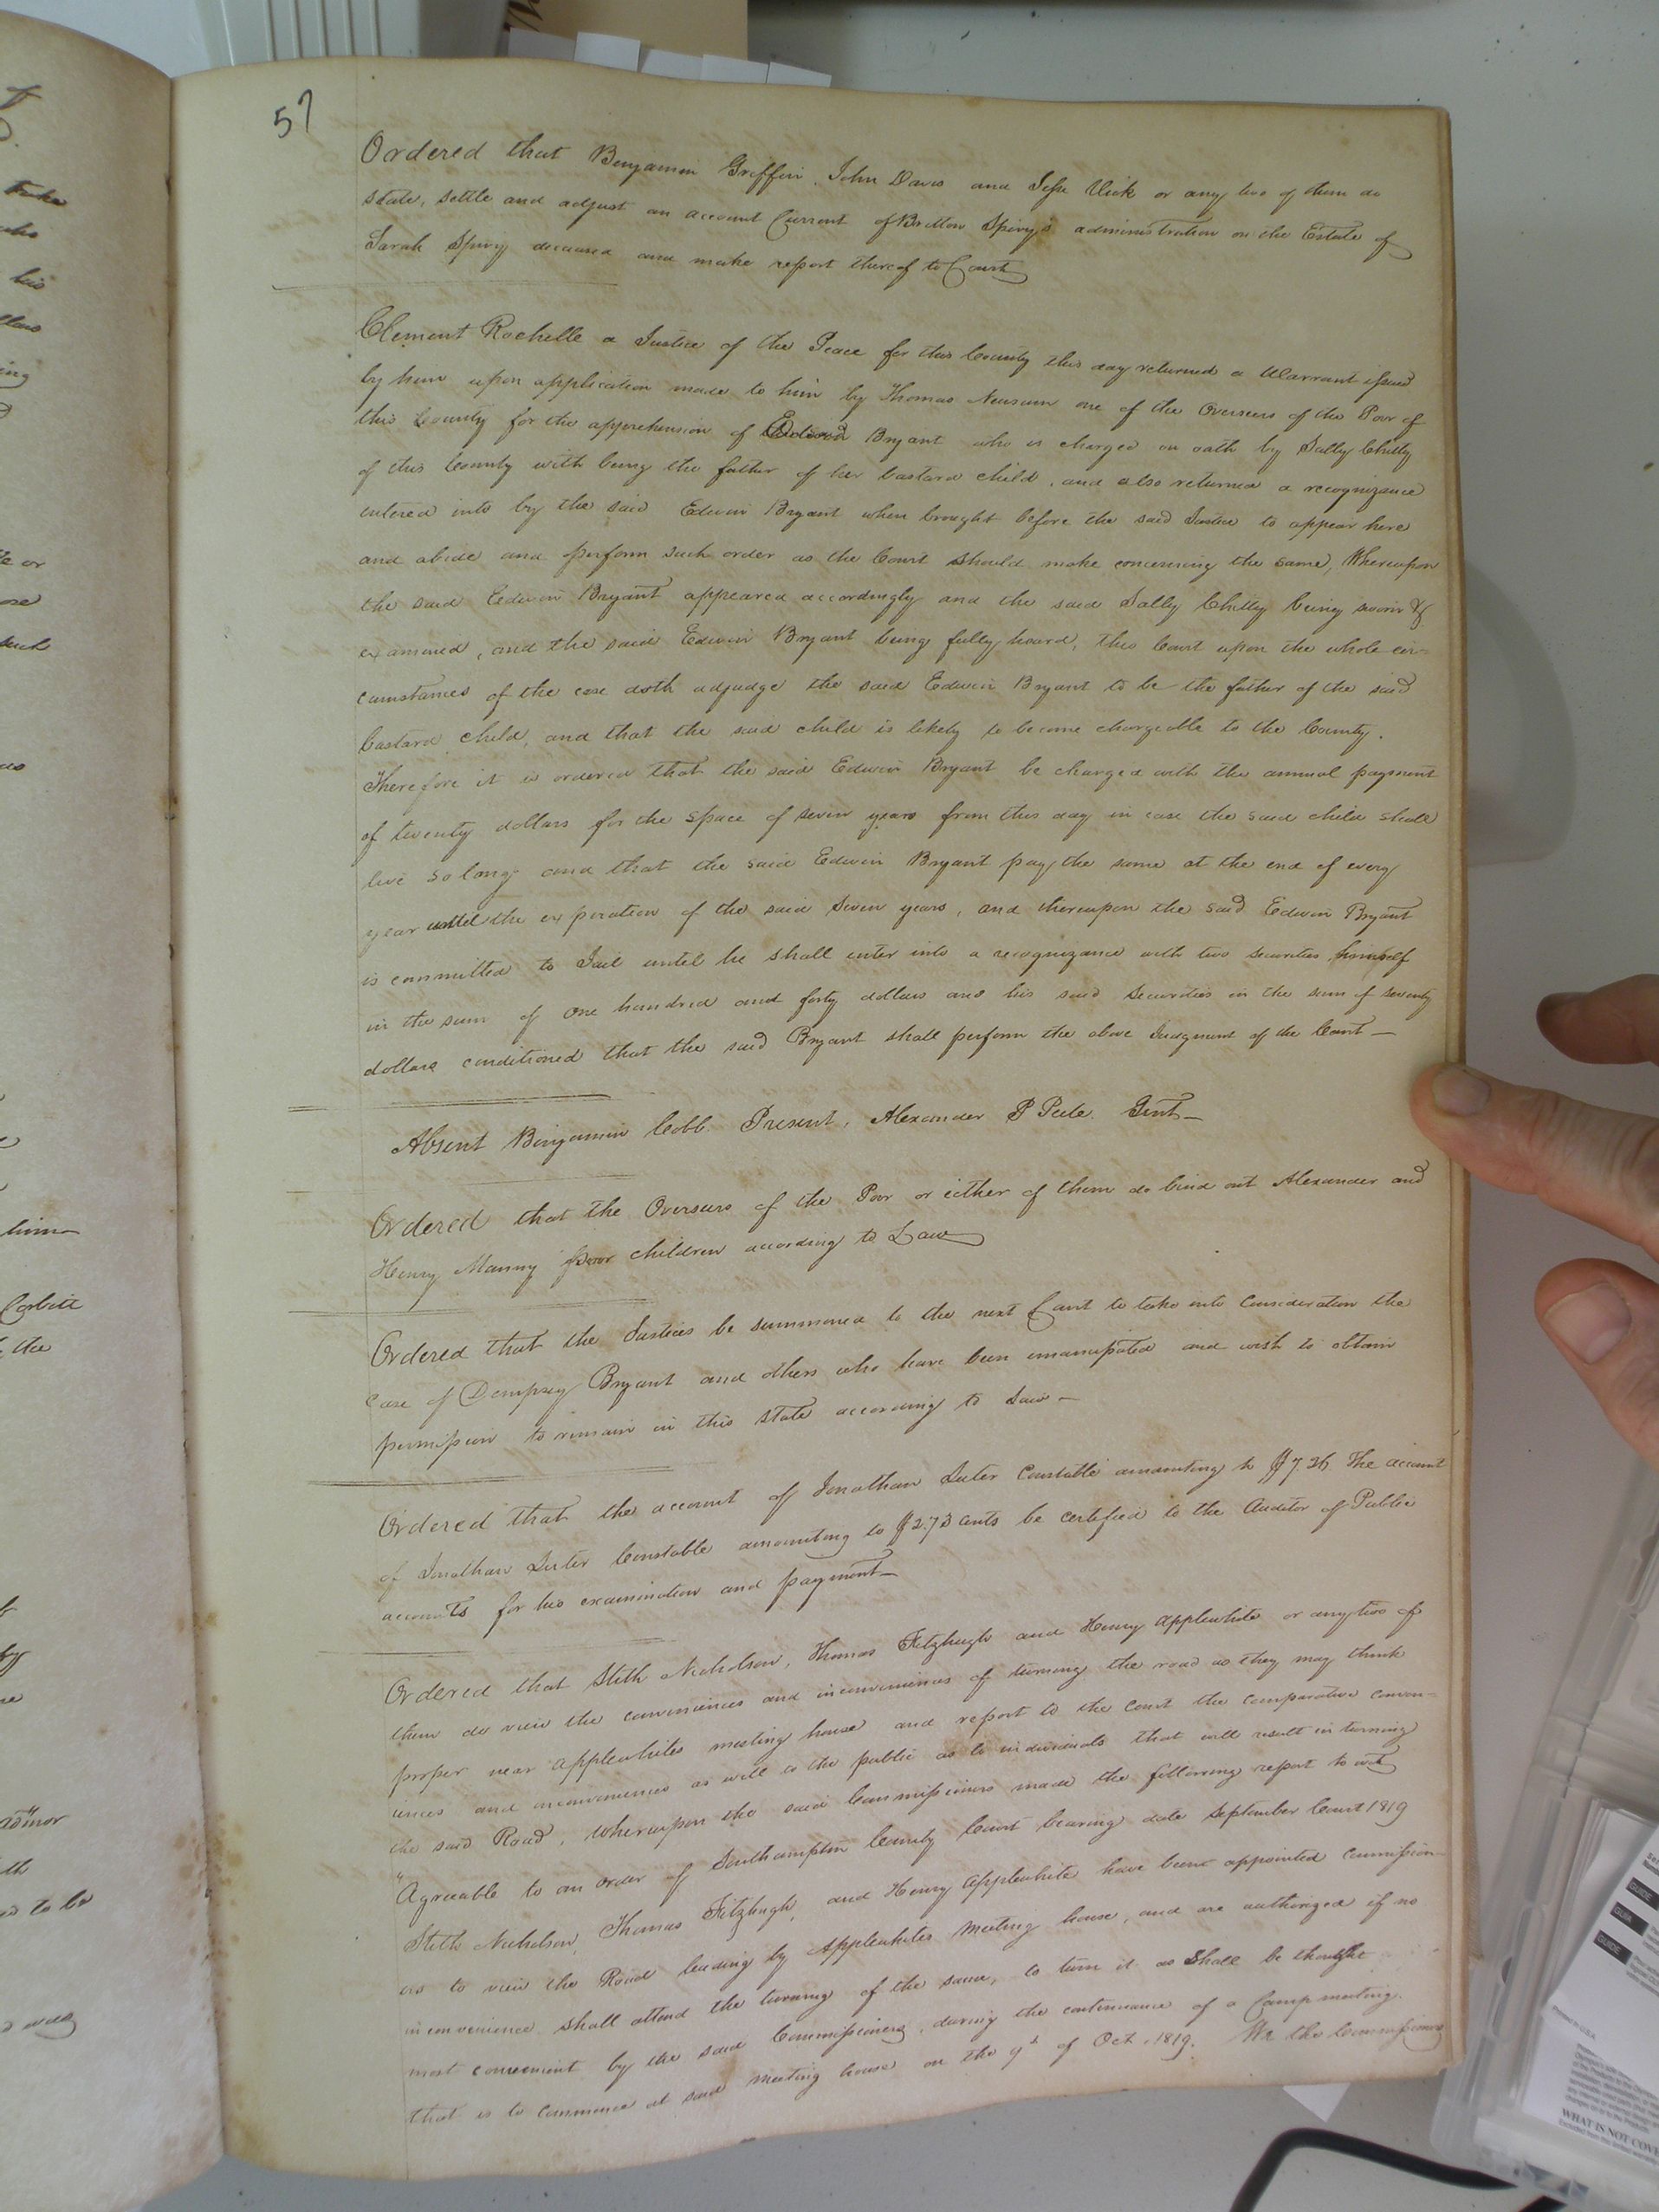 57
Ordered that Benjamin Griffin, John Davis and Jesse Vick or any two of them do
state, settle and adjust an account Current of Britton Spivy's administration on the Estate of
Sarah Spivy deceased and make report thereof to Court
Clement Rochelle a Justice of the Peace for this County this day returned a Warrant issued
by him upon application made to him by Thomas Newsum one of the Overseers of the Poor of
this County for the apprehension of Edwin Bryant who is charged on oath by Sally Chitty
of this County with being the father of her bastard child, and also returned a recognizance
entered into by the said Edwin Bryant when brought before the said Justice to appear here
and abide and perform such order as the Court should make concerning the same, Whereupon
the said Edwin Bryant appeared accordingly and the said Sally Chitty being sworn &
examined, and the said Edwin Bryant being fully heard, this Court upon the whole cir=
cumstances of the case doth adjudge the said Edwin Bryant to be the father of the said
bastard child, and that the said child is likely to become chargeable to the County.
Therefore it is ordered that the said Edwin Bryant be charged with the annual payment
of twenty dollars for the space of seven years from this day in case the said child shall
live so long and that the said Edwin Bryant pay the same at the end of every
year until the expiration of the said seven years, and thereupon the said Edwin Bryant
is committed to Jail until he shall enter into a recognizance with two securities himself
in the sum of one hundred and forty dollars and his said securities in the sum of seventy
dollars conditioned that the said Bryant shall perform the above Judgment of the Court —
Absent Benjamin Cobb Present, Alexander P Peete Gent —
Ordered that the Overseers of the Poor or either of them do bind out Alexander and
Henry Manny poor children according to Law
Ordered that the Justices be summoned to the next Court to take into Consideration the
case of Dempsey Bryant and others who have been emancipated and wish to obtain
permission to remain in this State according to Law —
Ordered that the account of Jonathan Luter Constable amounting to $7.26 The account
of Jonathan Luter Constable amounting to $2.73 cents be certified to the Auditor of Public
accounts for his examination and payment —
Ordered that Stith Nicholson, Thomas Fitzhugh and Henry Applewhite or any two of
them do view the conveniences and inconveniences of turning the road as they may think
proper near Applewhites meeting house and report to the Court the comparative conven=
iences and inconveniences as well to the public as to individuals that will result in turning
the said Road, whereupon the said Commissioners made the following report to wit
"Agreeable to an order of Southampton County Court bearing date September Court 1819
Stith Nicholson, Thomas Fitzhugh, and Henry Applewhite have been appointed commission
ers to view the Road leading by Applewhites Meeting house, and are authorized if no
inconvenience shall attend the turning of the same, to turn it as shall be thought
most convenient by the said Commissioners, during the continuance of a Camp meeting.
that is to commence at said meeting house on the 9th of Oct. 1819. We the Commissioners